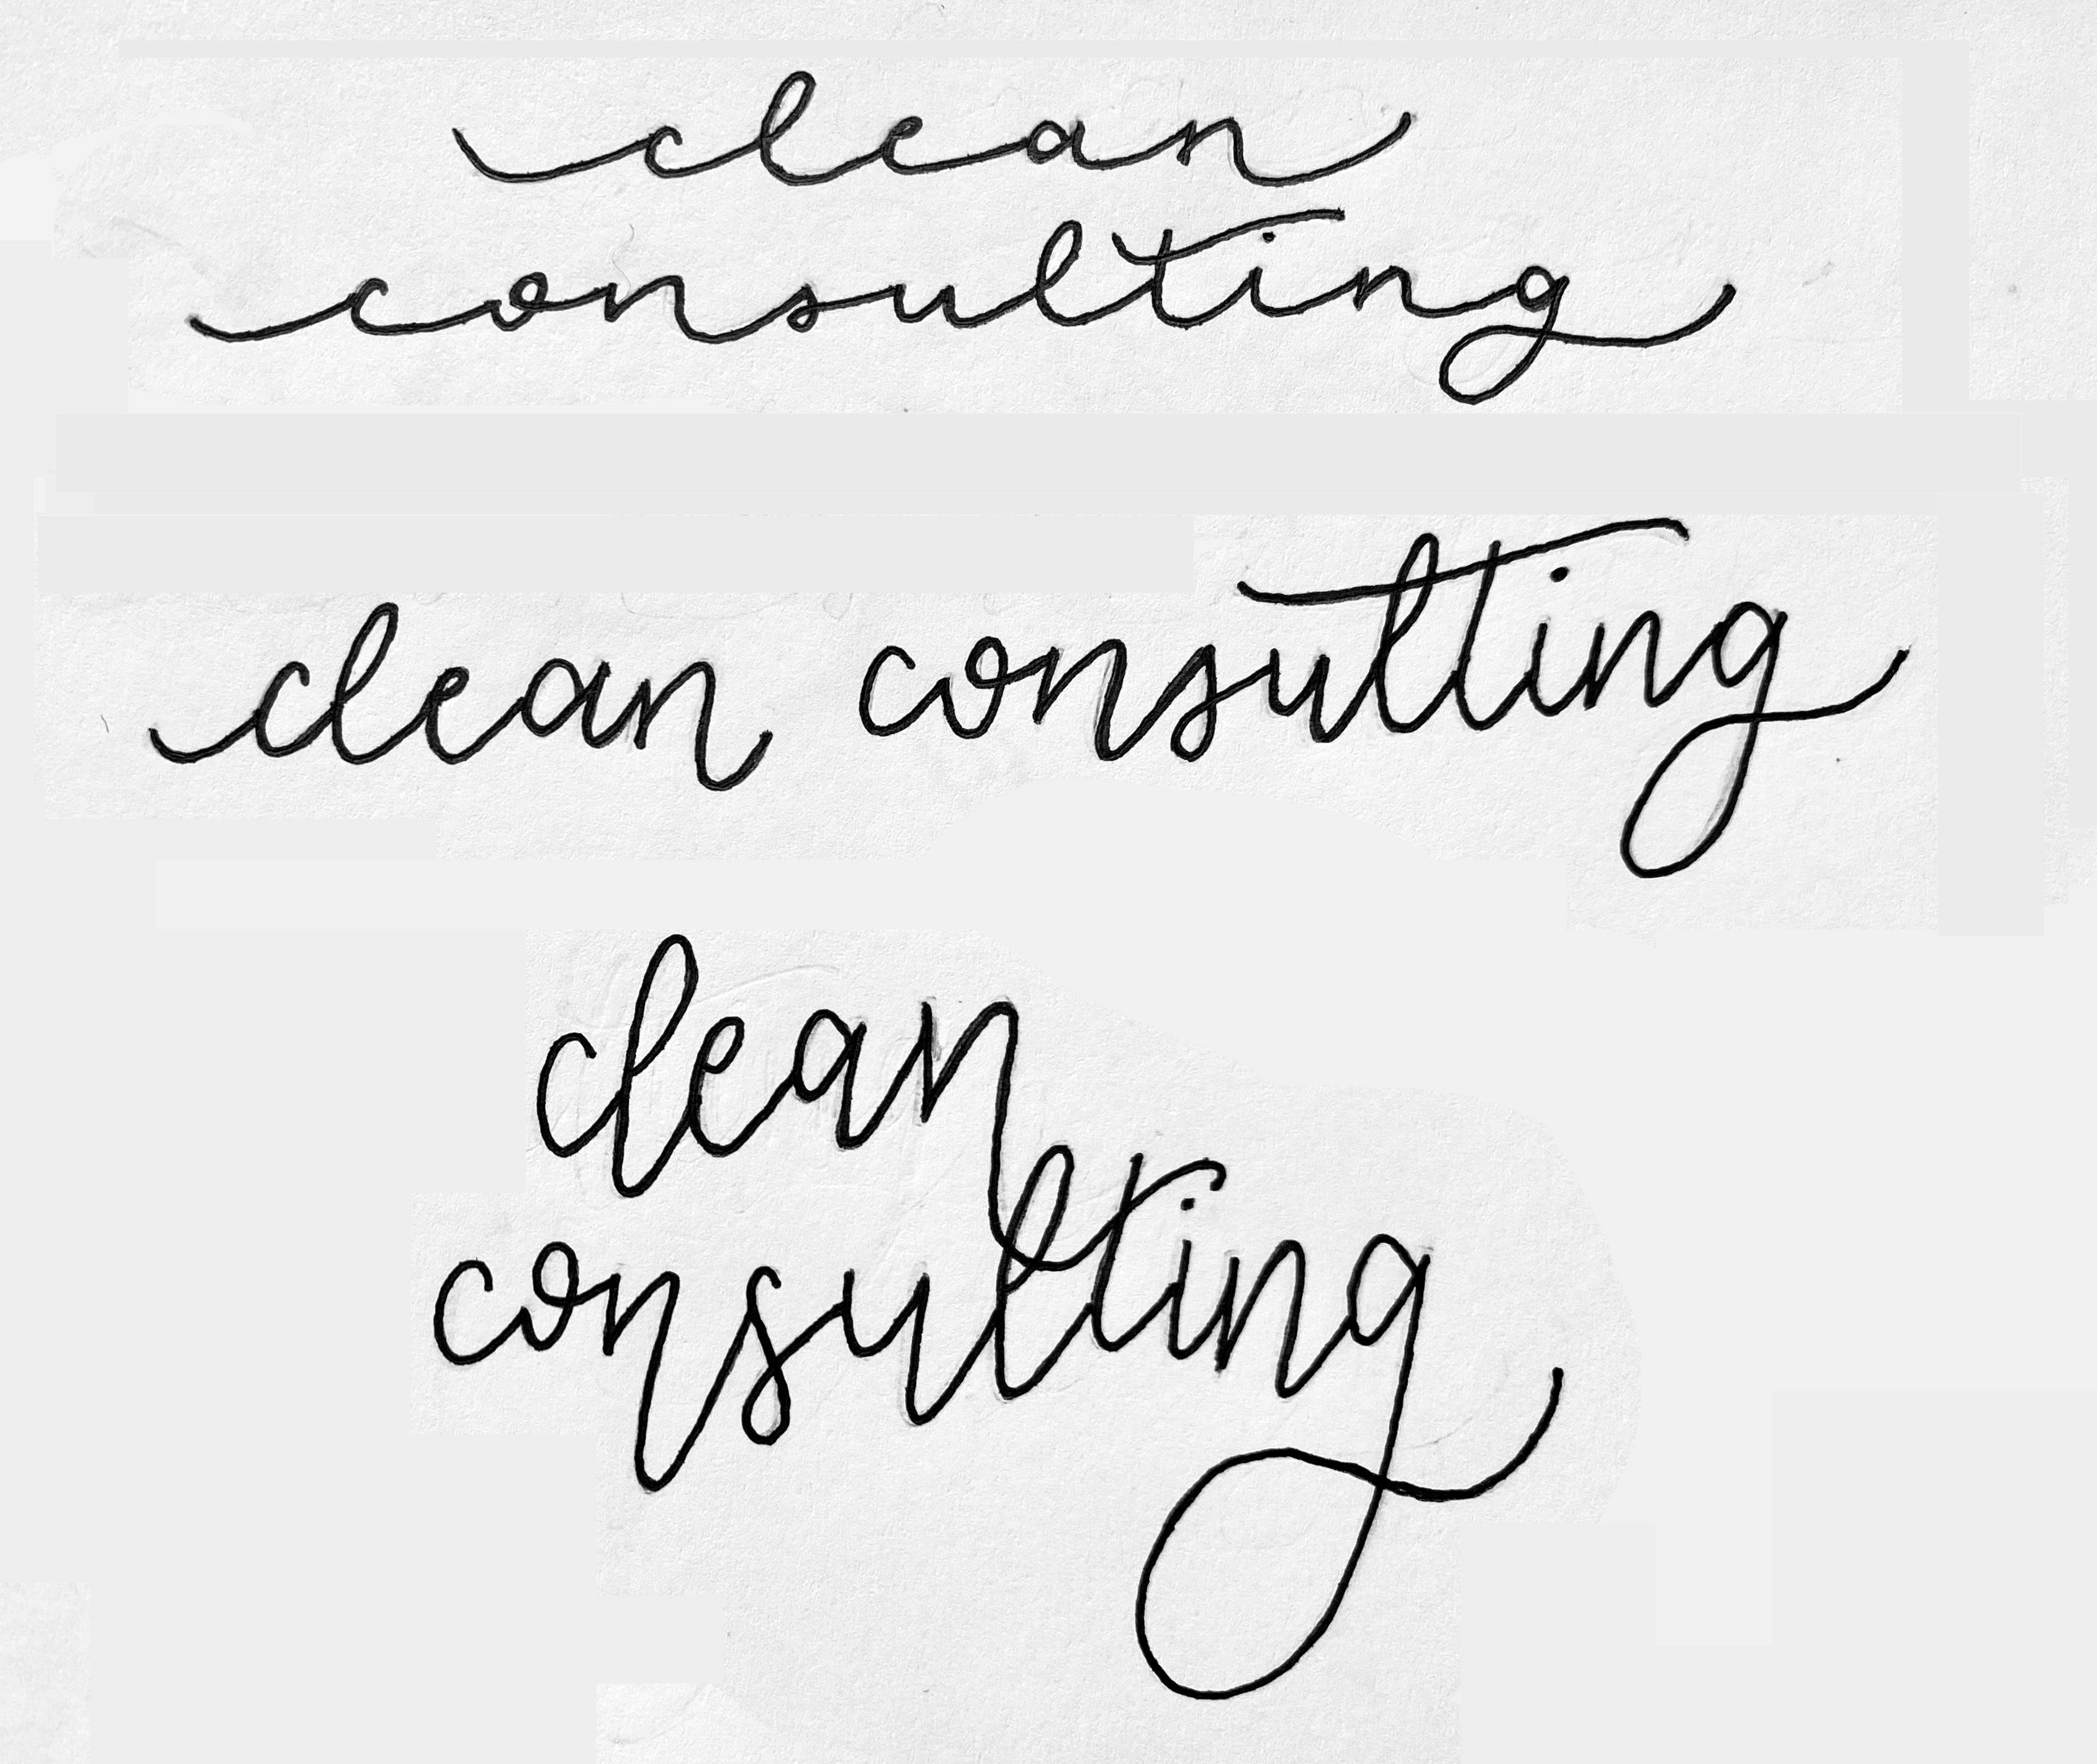 clean
consulting
clean consulting
clean
consulting